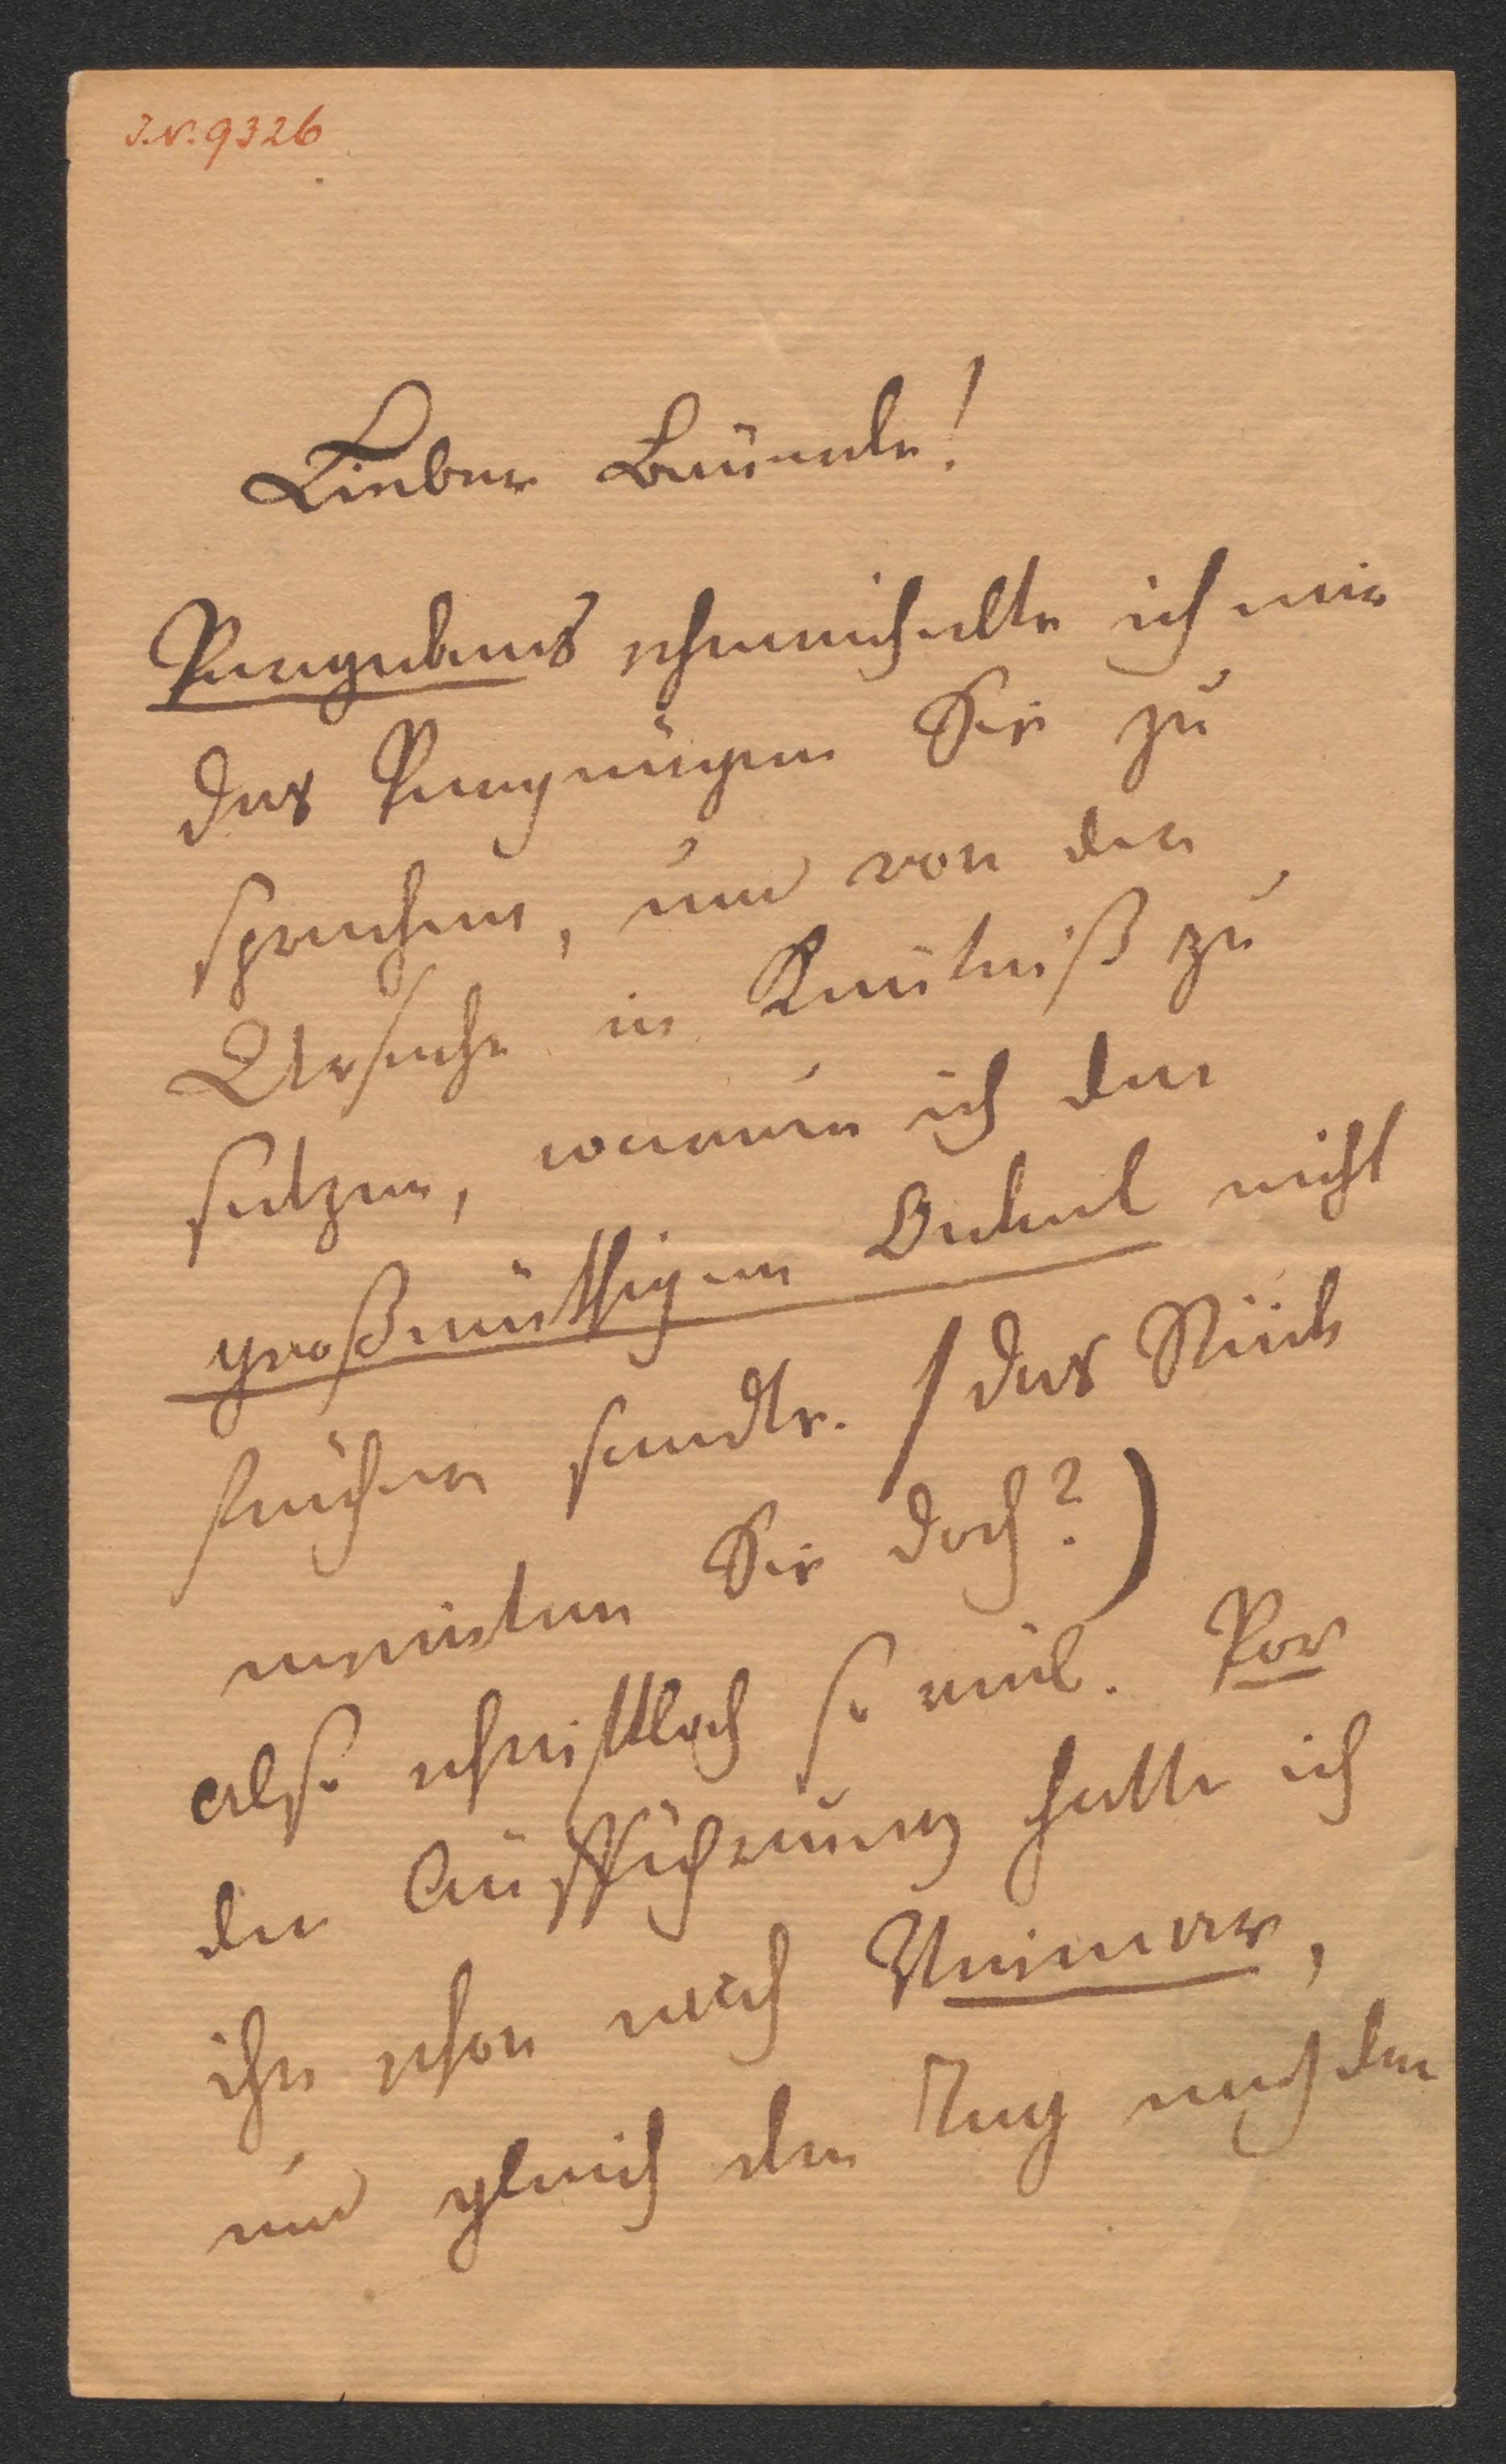 I.N. 9326
Lieber Bäuerle!
Vergebens schmeichelte ich mir
das Vergnügen Sie zu
sprechen, und von der
Ursache in Kentniß zu
setzen, warum ich den
großmüthigen Onkel nicht
früher sandte. / das Stück
meinten Sie doch? )
also schriftlich so viel. Vor
der Aufführung hatte ich
ihn schon nach Weimar,
und gleich den Tag nach der